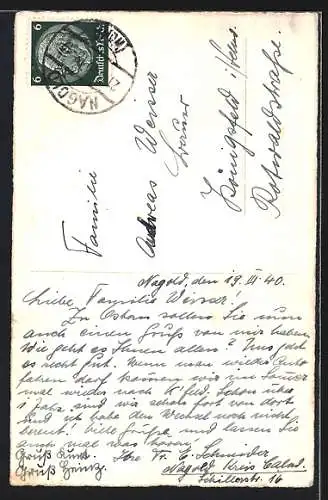 6 Deutsches Reich 6
NAGOLD
Familie
Andreas Weisser
Königsfeld i/Schw.
Rotwaldstraße.
Nagold, den 19. III. 40.
Liebe Familie Weisser!
Zu Ostern sollen Sie nun
auch einen Gruß von mir haben.
Wie geht es Ihnen allen? Uns geht
es recht gut. Wenn man wieder Auto
fahren darf kommen wir im
mal wieder nach K'feld. Schon übers
1 Jahr sind wir schon fort von dort
und ich habe den Wechsel noch nicht
bereut! Viele Grüße und lassen Sie
auch mal was hören!
Gruß Kurt. Ihre Fr. E. Schneider
Gruß Heinz. Nagold Kreis Calw.
Schillerstr. 16